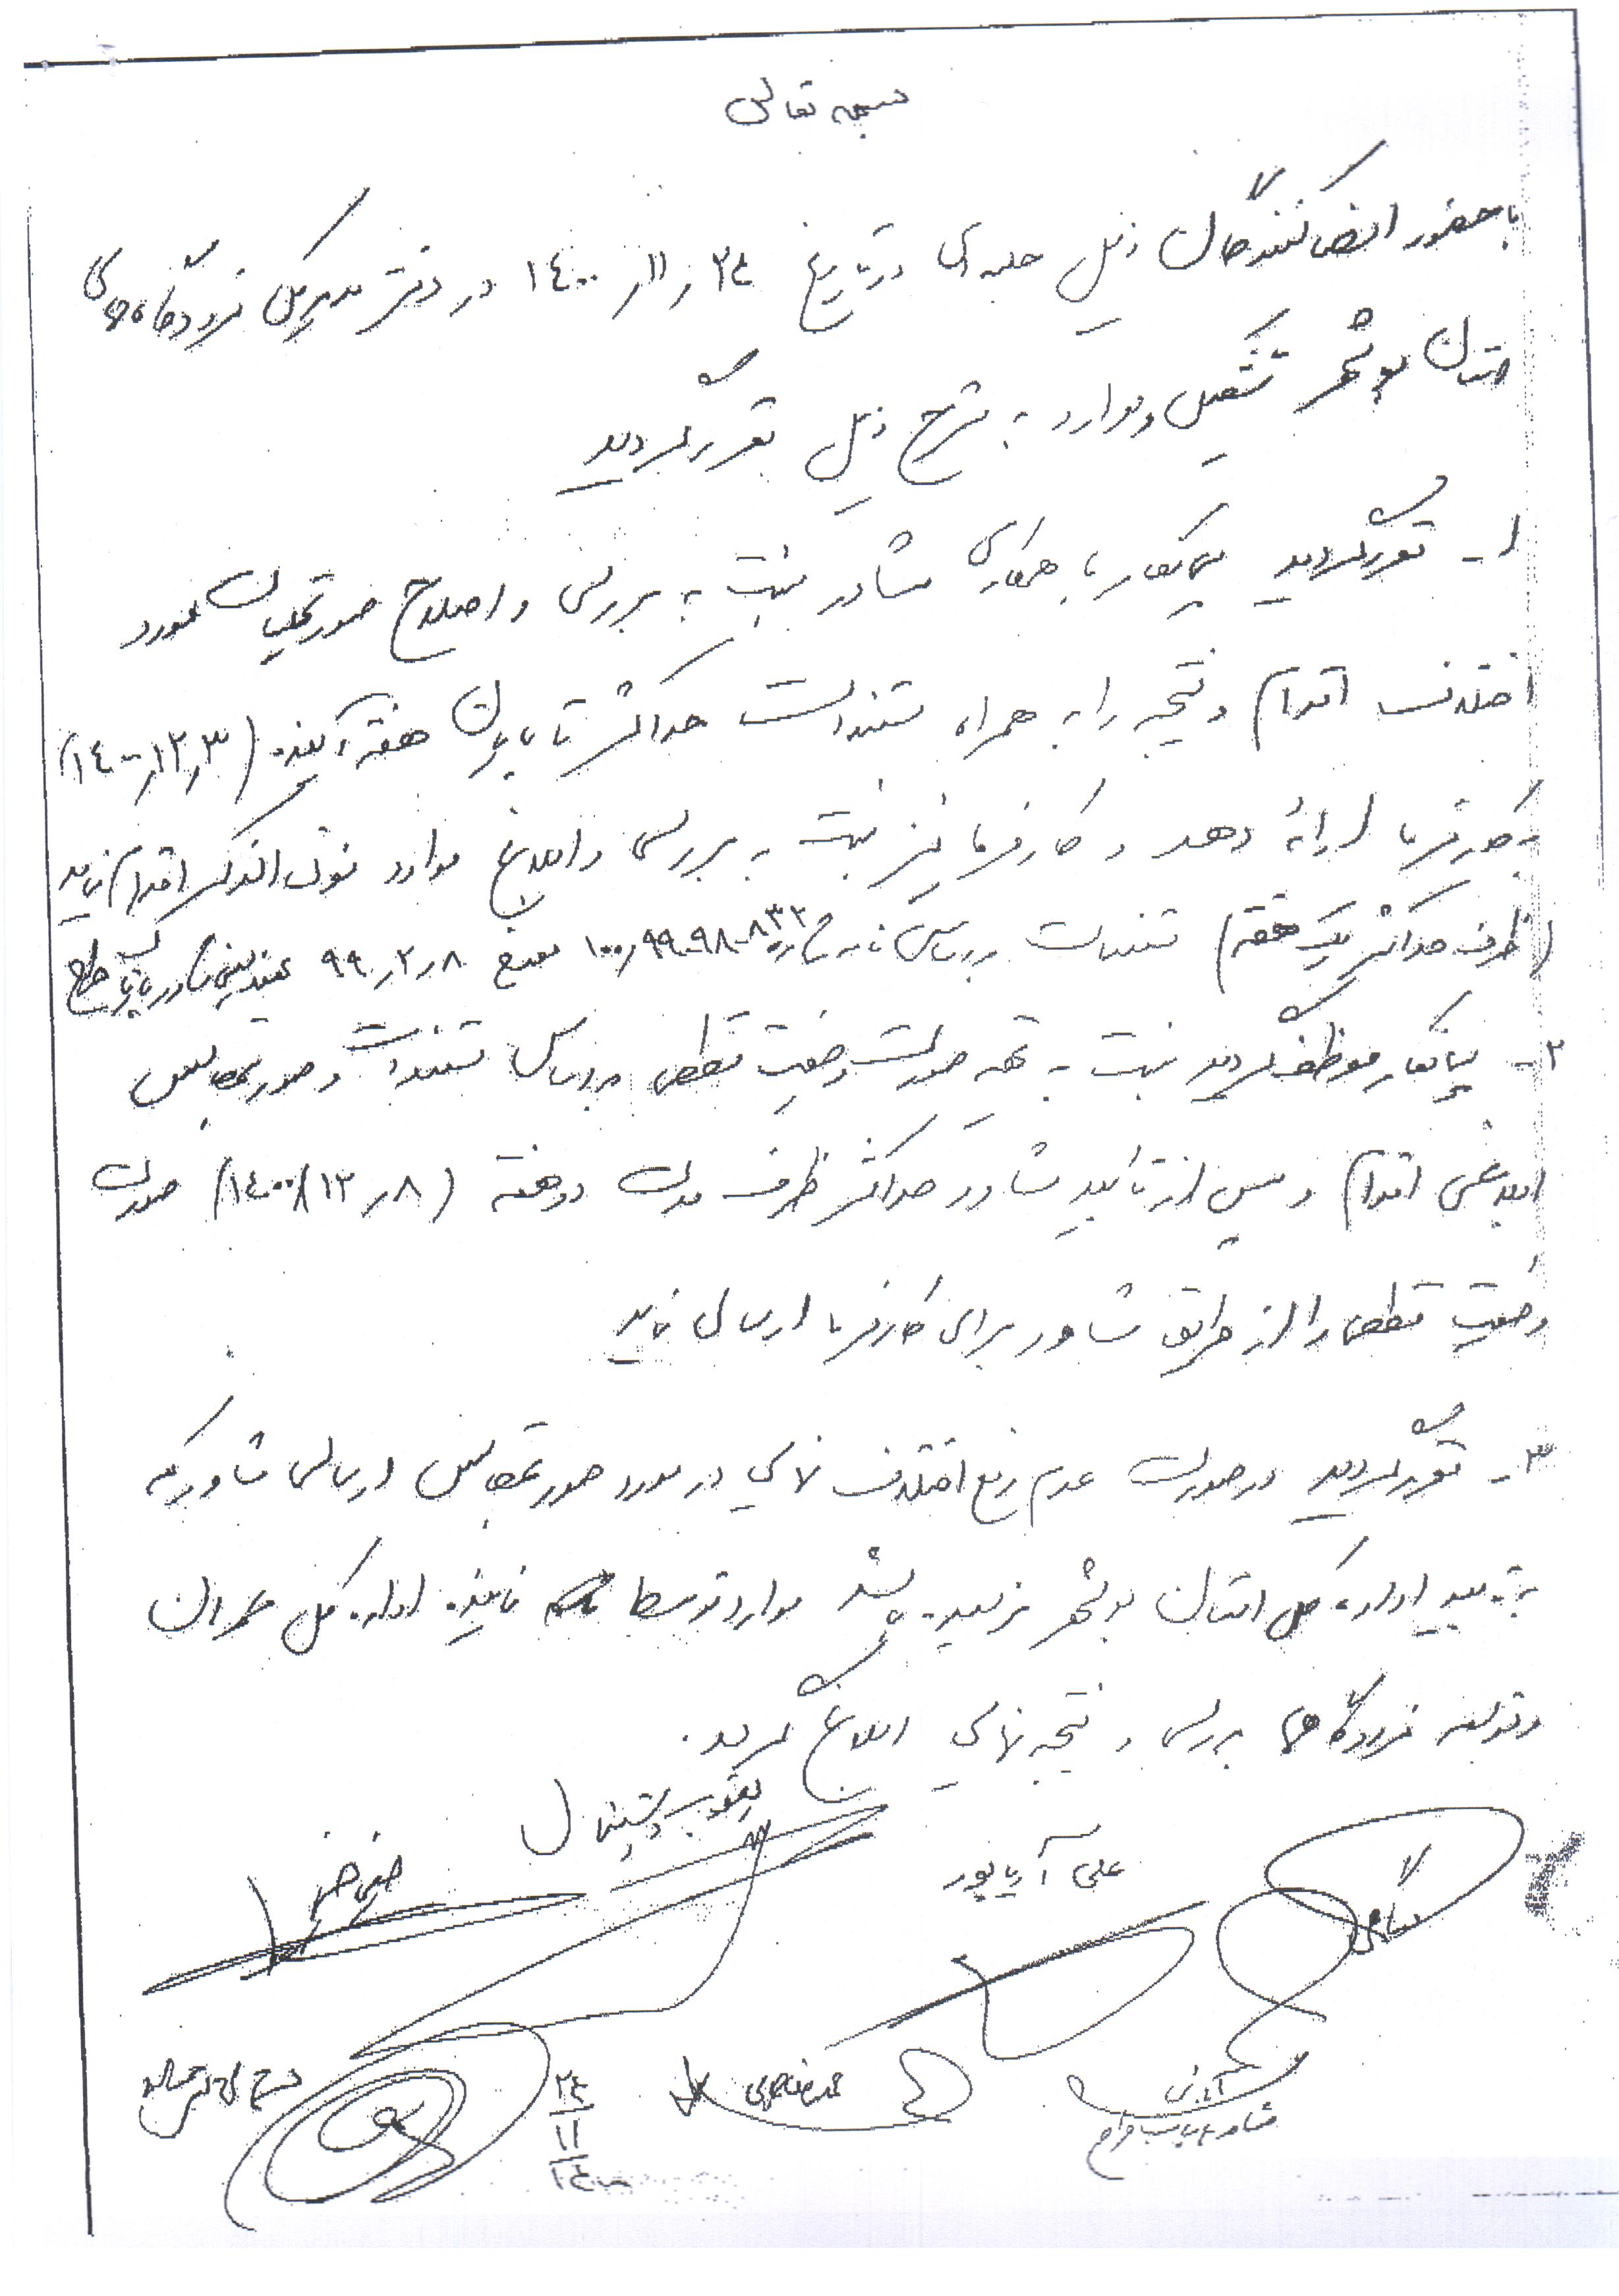 بسمه تعالی
با حضور امضا کنندگان ذیل جلسه ای در تاریخ ۱۴۰۰/۱۱/۲۴ در دفتر مدیر کل فرودگاه های
استان بوشهر تشکیل و موارد به شرح ذیل مقرر گردید
۱- مقرر گردید پیمانکار با همکاری مشاور نسبت به بررسی و اصلاح صورتجلسات مورد
اختلاف اقدام و نتیجه را به همراه مستندات حداکثر تا پایان هفته آینده (۱۴۰۰/۱۲/۳)
به کارفرما ارائه دهد و کارفرما نیز نسبت به بررسی و ابلاغ موارد فوق الذکر اقدام نماید
(ظرف حداکثر یک هفته) مستندات بر اساس نامه شماره ۱۰۰/۹۹-۹۸-۸۳۲ مورخ ۹۹/۲/۸ مهندسین مشاور
۲- پیمانکار موظف گردید نسبت به تهیه صورت وضعیت قطعی بر اساس مستندات و صورتجلسات
ابلاغی اقدام و پس از تأیید مشاور حداکثر ظرف مدت دو هفته (۱۴۰۰/۱۲/۸) صورت
وضعیت قطعی را از طریق مشاور برای کارفرما ارسال نماید
۳- مقرر گردید در صورت عدم رفع اختلاف نهایی در مورد صورتجلسات ارسالی مشاور که
به تایید اداره کل استان بوشهر نرسیده باشد موارد توسط نماینده اداره کل عمران
و توسعه فرودگاهها بررسی و نتیجه نهایی ابلاغ گردد.
علی آریاپور
۲۴
۱۱
۱۴۰۰